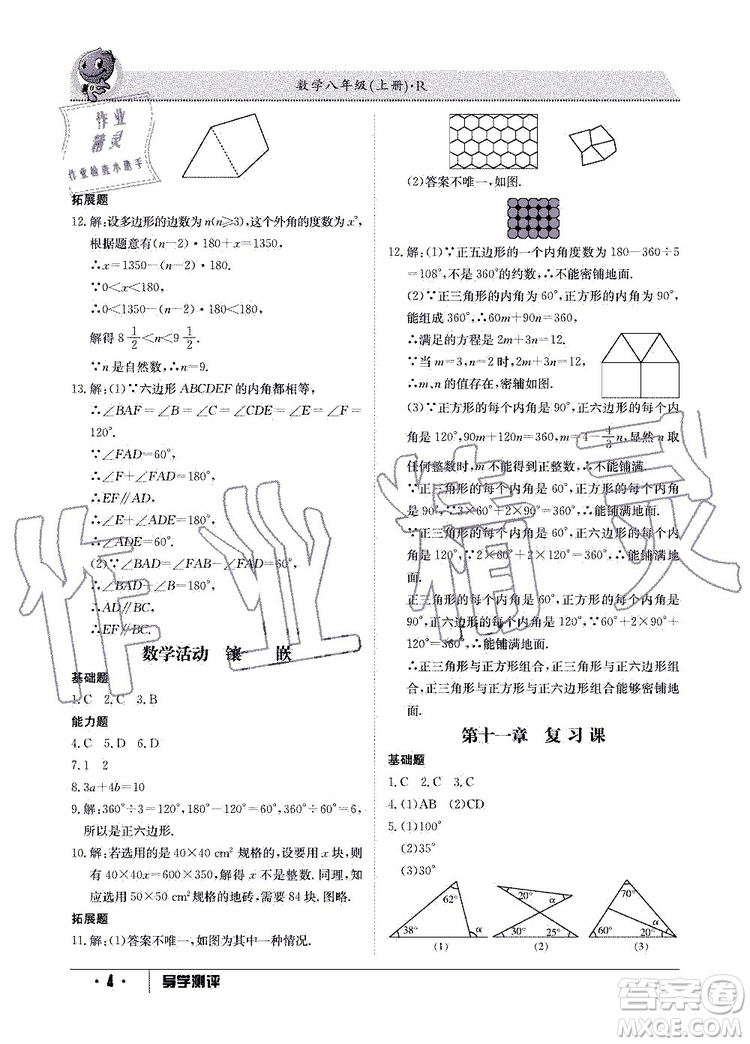 数学八年级(上册)·R
作业
精灵
作业检查小助手
拓展题
12.解:设多边形的边数为n(n≥3),这个外角的度数为x°,
根据题意有(n-2)·180+x=1350,
∴x=1350-(n-2)·180.
∵0<x<180,
∴0<1350-(n-2)·180<180,
解得 8 1/2<n<9 1/2.
∵n是自然数,∴n=9.
13.解:(1)∵六边形ABCDEF的内角都相等,
∴∠BAF=∠B=∠C=∠CDE=∠E=∠F=
120°.
∵∠FAD=60°,
∴∠F+∠FAD=180°,
∴EF∥AD,
∴∠E+∠ADE=180°,
∴∠ADE=60°.
(2)∵∠BAD=∠FAB-∠FAD=60°,
∴∠BAD+∠B=180°,
∴AD∥BC,
∴EF∥BC.
数学活动 镶 嵌
基础题
1.C 2.C 3.B
能力题
4.C 5.D 6.D
7.1 2
8.3a+4b=10
9.解:360°÷3=120°,180°-120°=60°,360°÷60=6,
所以是正六边形.
10.解:若选用的是40×40 cm²规格的,设要用x块,则
有40×40x=600×350,解得x不是整数.同理,知
应选用50×50 cm²规格的地砖,需要84块.图略.
拓展题
11.解:(1)答案不唯一,如图其中一种情况.
(2)答案不唯一,如图.
12.解:(1)∵正五边形的一个内角度数为180-360÷5
=108°,不是360°的约数,∴不能密铺地面.
(2)∵正三角形的内角为60°,正方形的内角为90°,
能组成360°,∴60m+90n=360,
∴满足的方程为2m+3n=12.
∵当m=3,n=2时,2m+3n=12,
∴m、n的值存在,密辅如图.
(3)∵正方形的每个内角是90°,正六边形的每个内
角是120°,90m+120n=360°,m=4-4/3n,显然n取
任何整数时,m不能得到正整数,∴不能铺满.
正三角形的每个内角是60°,正方形的每个内角是
90°,∵3×60°+2×90°=360°,∴能铺满地面.
正三角形的每个内角是60°,正六边形的每个内角
是120°,∵2×60°+2×120°=360°,∴能铺满地
面.
正三角形的每个内角是60°,正方形的每个内角是
90°,正六边形的每个内角是120°,∵60°+2×90°+
120°=360°,
∴能铺满地面.
∴正三角形与正方形组合,正三角形与正六边形组
合,正三角形与正方形与正六边形组合能铺满地面.
第十一章 复习课
基础题
1.C 2.C 3.C
4.(1)AB (2)CD
5.(1)100°
(2)35°
(3)30°
62° 38° α
20° α 30° 25°
70° 60° 20° α
(1) (2) (3)
作业精灵
·4· 导学测评
答案圈
MXQE.COM